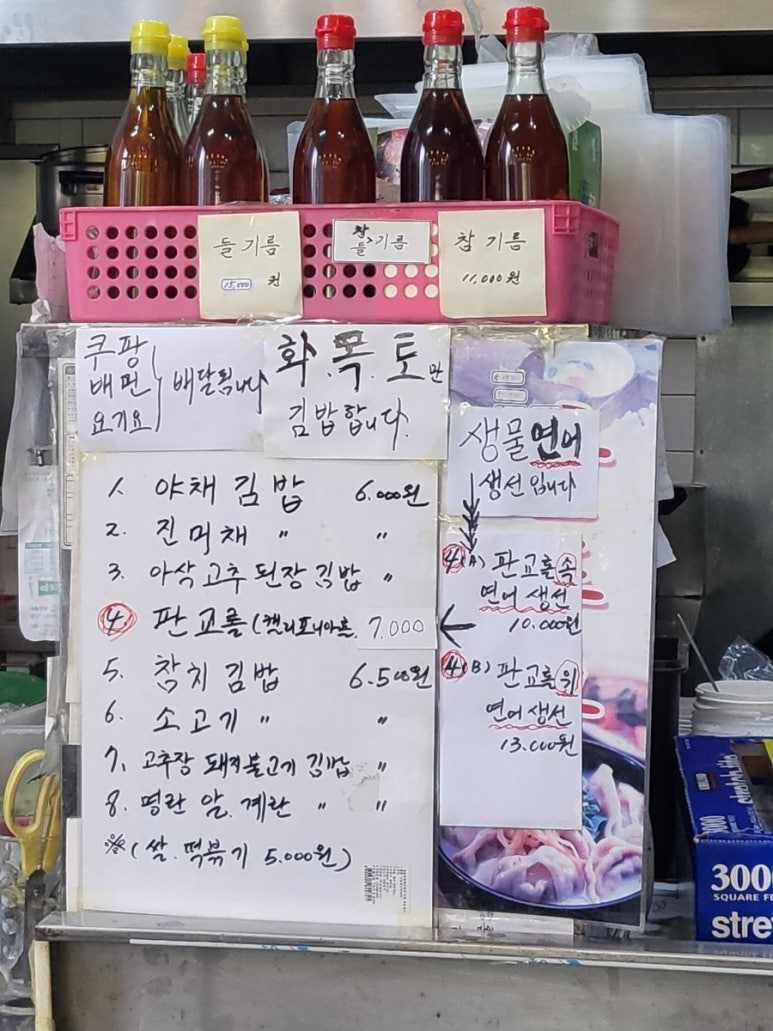 들기름
15,000 원
참
들기름
참 기름
11,000원
쿠팡
배민
요기요
배달됩니다
화.목.토만
김밥합니다.
생물연어
생선입니다
1. 야채 김밥 6.000원
2. 진미채 〃 〃
3. 아삭고추된장김밥 〃
4. 판교롤(캘리포니아롤. 7,000
5. 참치김밥 6.500원
6. 소고기 〃 〃
7. 고추장 돼지불고기 김밥 〃
8. 명란 알. 계란 〃 〃
※(쌀. 떡볶기 5.000원)
4(A) 판교롤속
연어생선
10.000원
4(B) 판교롤위
연어생선
13.000원
3000
SQUARE FE
stre